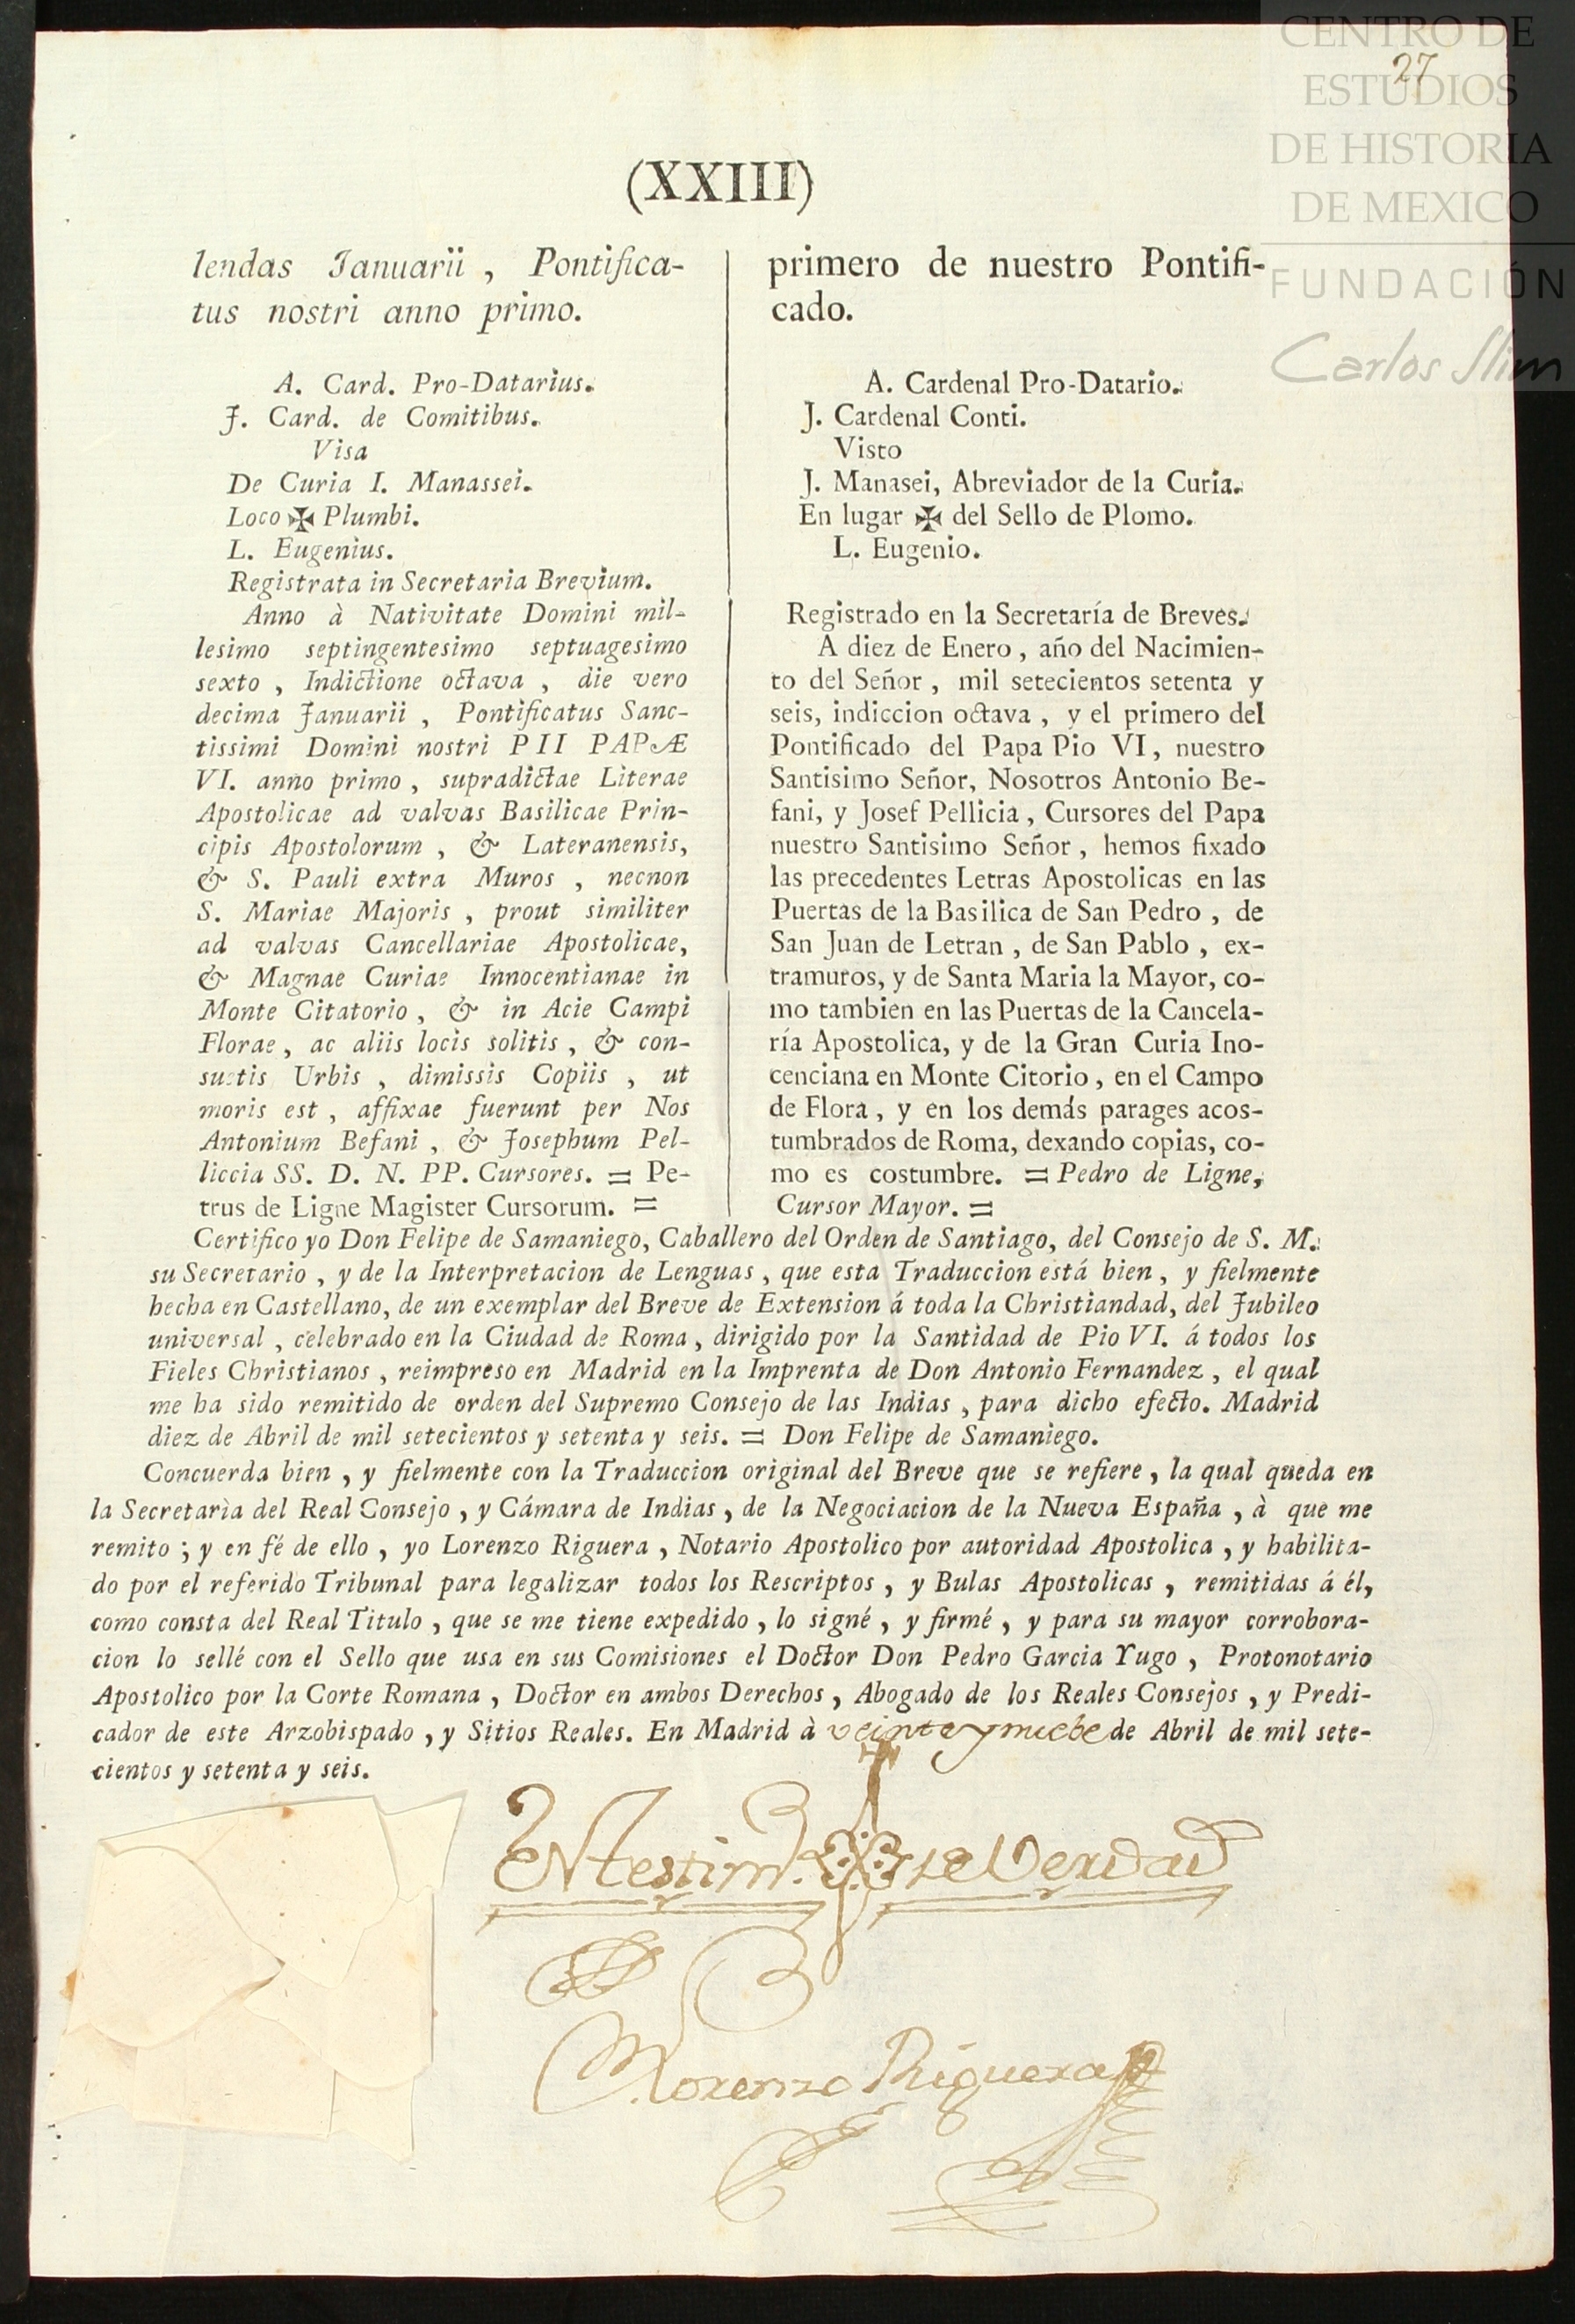 CENTRO DE
ESTUDIOS
DE HISTORIA
DE MEXICO
FUNDACIÓN
Carlos Slim
27
(XXIII)
lendas Januarii , Pontifica-
tus nostri anno primo.
A. Card. Pro-Datarius.
J. Card. de Comitibus.
Visa
De Curia I. Manassei.
Loco ✠ Plumbi.
L. Eugenius.
Registrata in Secretaria Brevium.
Anno à Nativitate Domini mil-
lesimo septingentesimo septuagesimo
sexto , Indictione octava , die vero
decima Januarii , Pontificatus Sanc-
tissimi Domini nostri PII PAPÆ
VI. anno primo , supradictae Literae
Apostolicae ad valvas Basilicae Prin-
cipis Apostolorum , & Lateranensis,
& S. Pauli extra Muros , necnon
S. Mariae Majoris , prout similiter
ad valvas Cancellariae Apostolicae,
& Magnae Curiae Innocentianae in
Monte Citatorio , & in Acie Campi
Florae , ac aliis locis solitis , & con-
suetis Urbis , dimissis Copiis , ut
moris est , affixae fuerunt per Nos
Antonium Befani , & Josephum Pel-
liccia SS. D. N. PP. Cursores. = Pe-
trus de Ligne Magister Cursorum. =
primero de nuestro Pontifi-
cado.
A. Cardenal Pro-Datario.
J. Cardenal Conti.
Visto
J. Manasei, Abreviador de la Curia.
En lugar ✠ del Sello de Plomo.
L. Eugenio.
Registrado en la Secretaría de Breves.
A diez de Enero , año del Nacimien-
to del Señor , mil setecientos setenta y
seis, indiccion octava , y el primero del
Pontificado del Papa Pio VI, nuestro
Santisimo Señor, Nosotros Antonio Be-
fani, y Josef Pellicia , Cursores del Papa
nuestro Santisimo Señor , hemos fixado
las precedentes Letras Apostolicas en las
Puertas de la Basilica de San Pedro , de
San Juan de Letran , de San Pablo , ex-
tramuros, y de Santa Maria la Mayor, co-
mo tambien en las Puertas de la Cancela-
ría Apostolica, y de la Gran Curia Ino-
cenciana en Monte Citorio , en el Campo
de Flora , y en los demás parages acos-
tumbrados de Roma, dexando copias, co-
mo es costumbre. = Pedro de Ligne,
Cursor Mayor. =
Certifico yo Don Felipe de Samaniego, Caballero del Orden de Santiago, del Consejo de S. M.
su Secretario , y de la Interpretacion de Lenguas , que esta Traduccion está bien , y fielmente
hecha en Castellano, de un exemplar del Breve de Extension á toda la Christiandad, del Jubileo
universal , celebrado en la Ciudad de Roma , dirigido por la Santidad de Pio VI. á todos los
Fieles Christianos , reimpreso en Madrid en la Imprenta de Don Antonio Fernandez , el qual
me ha sido remitido de orden del Supremo Consejo de las Indias , para dicho efecto. Madrid
diez de Abril de mil setecientos y setenta y seis. = Don Felipe de Samaniego.
Concuerda bien , y fielmente con la Traduccion original del Breve que se refiere , la qual queda en
la Secretarìa del Real Consejo , y Cámara de Indias , de la Negociacion de la Nueva España , à que me
remito ; y en fé de ello , yo Lorenzo Riguera , Notario Apostolico por autoridad Apostolica , y habilita-
do por el referido Tribunal para legalizar todos los Rescriptos , y Bulas Apostolicas , remitidas á él,
como consta del Real Titulo , que se me tiene expedido , lo signé , y firmé , y para su mayor corrobora-
cion lo sellé con el Sello que usa en sus Comisiones el Doctor Don Pedro Garcia Yugo , Protonotario
Apostolico por la Corte Romana , Doctor en ambos Derechos , Abogado de los Reales Consejos , y Predi-
cador de este Arzobispado , y Sitios Reales. En Madrid à veinte y nuebe de Abril de mil sete-
cientos y setenta y seis.
En testim.º de Verdad
Lorenzo Riguera